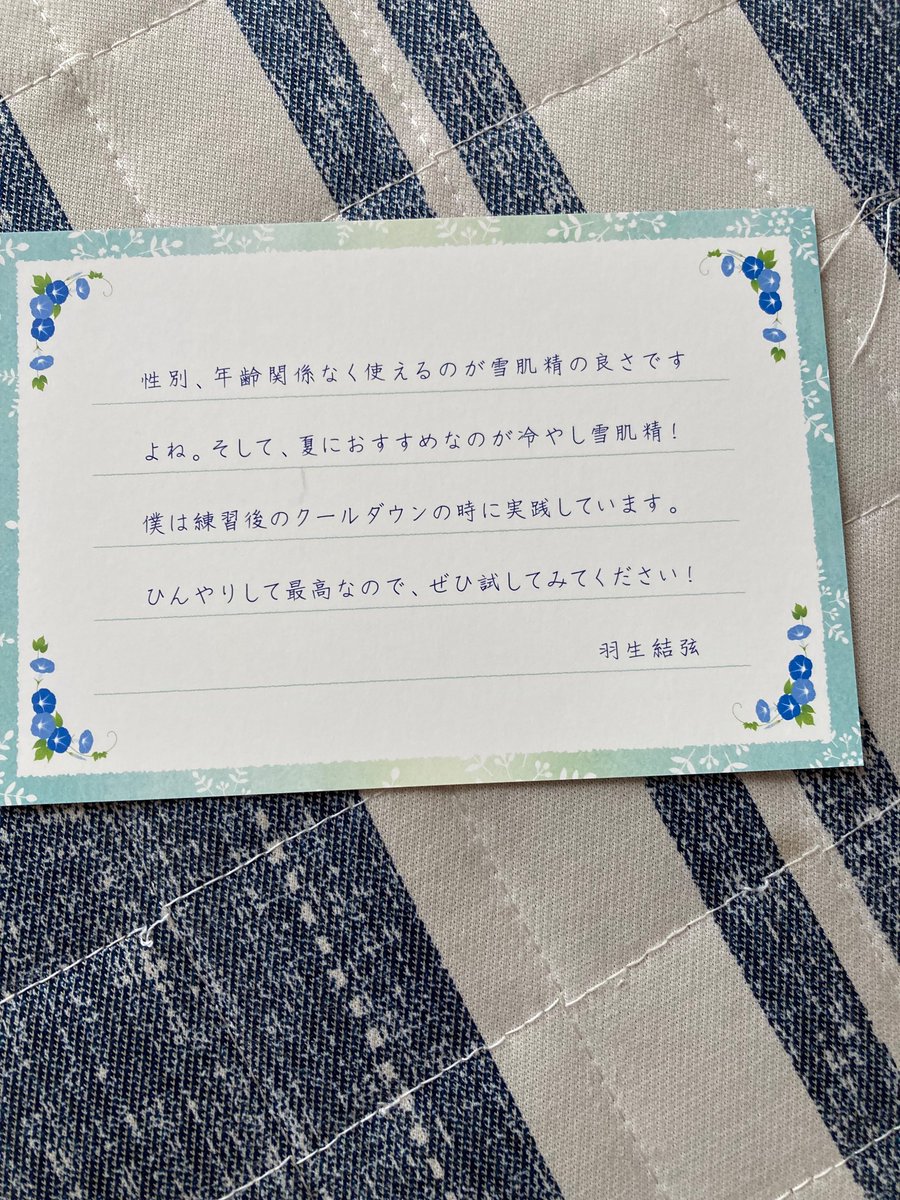 性別、年齢関係なく使えるのが雪肌精の良さです
よね。そして、夏におすすめなのが冷やし雪肌精！
僕は練習後のクールダウンの時に実践しています。
ひんやりして最高なので、ぜひ試してみてください！
羽生結弦